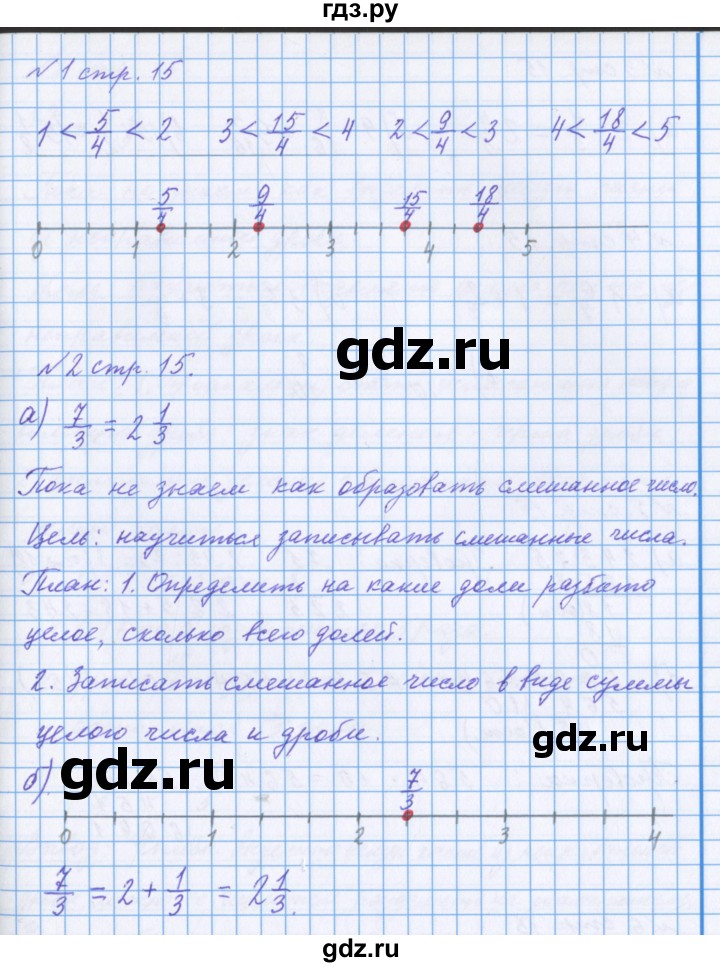 гдз.ру
№1 стр. 15
1 < 5/4 < 2 3 < 15/4 < 4 2 < 9/4 < 3 4 < 18/4 < 5
5/4 9/4 15/4 18/4
0 1 2 3 4 5
gdz.ru
№2 стр. 15.
а) 7/3 = 2 1/3
Пока не знаем как образовать смешанное число.
Цель: научиться записывать смешанные числа.
План: 1. Определить на какие доли разбито
целое, сколько всего долей.
2. Записать смешанное число в виде суммы
целого числа и дроби.
gdz.ru
б). gdz.ru
7/3
0 1 2 3 4
7/3 = 2 + 1/3 = 2 1/3.
gdz.ru